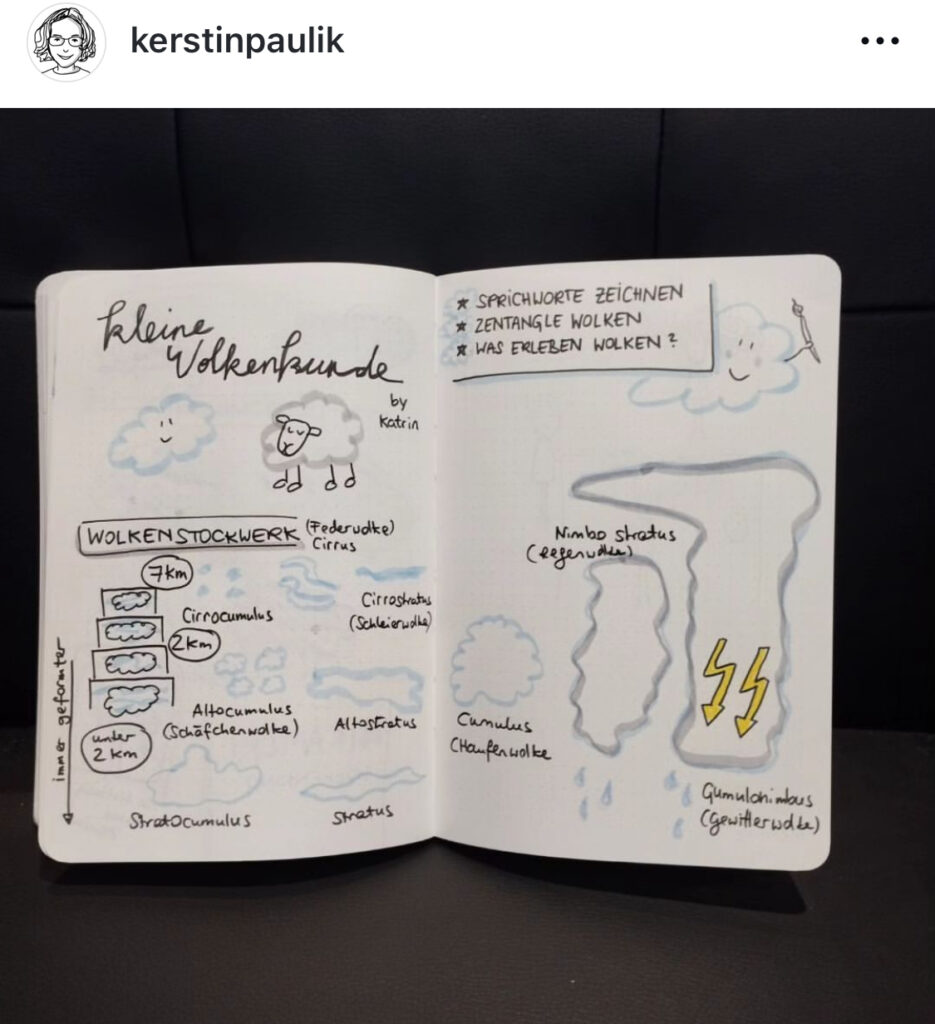 kerstinpaulik
kleine
Wolkenkunde
by
Katrin
WOLKENSTOCKWERK
(Federwolke)
Cirrus
7km
Cirrocumulus
Cirrostratus
(Schleierwolke)
2km
Altocumulus
(Schäfchenwolke)
Altostratus
immer geformter
unter
2 km
Stratocumulus
Stratus
★ SPRICHWORTE ZEICHNEN
★ ZENTANGLE WOLKEN
★ WAS ERLEBEN WOLKEN?
Nimbo stratus
(Regenwolke)
Cumulus
(Haufenwolke
Cumulonimbus
(Gewitterwolke)